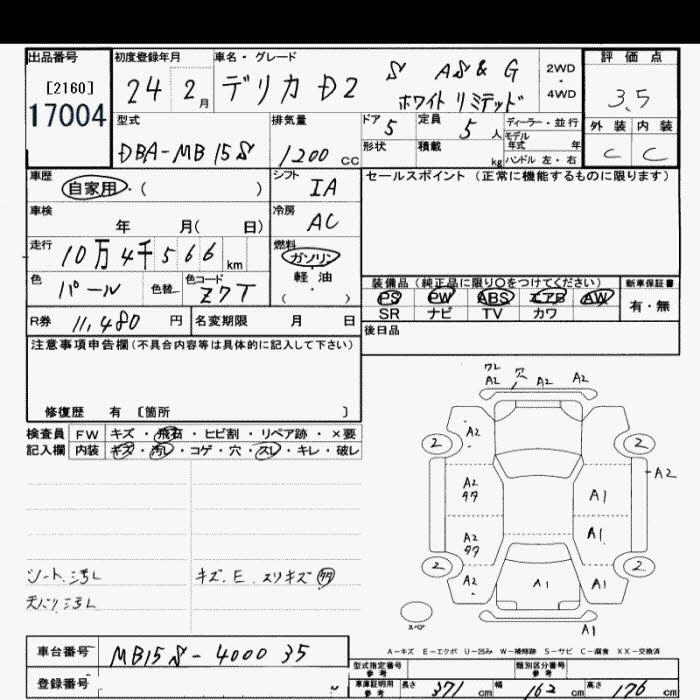 出品番号
[2160]
17004
初度登録年月
24 2月
車名・グレード
デリカD2
S AS&G
ホワイトリミテッド
2WD
4WD
評価点
3.5
外装 内装
C C
型式
DBA-MB15S
排気量
1200 cc
ドア 5
定員 5人
形状
積載 kg
ディーラー・並行
モデル年式 年
ハンドル 左・右
車歴
自家用・( )
シフト
IA
セールスポイント (正常に機能するものに限ります)
車検
年 月( 日)
冷房
AC
走行
10万4千566 km
燃料
ガソリン
軽・油
( )
色
パール
色替
色コード
Z7T
装備品(純正品に限り○をつけてください)
PS PW ABS エアB AW
SR ナビ TV カワ
新車保証書
有・無
R券 11,480 円
名変期限 月 日
後日品
注意事項申告欄(不具合内容等は具体的に記入して下さい)
修復歴 有 〔箇所 〕
検査員
記入欄
FW キズ・飛石・ヒビ割・リペア跡・×要
内装 キズ・汚レ・コゲ・穴・スレ・キレ・破レ
ワレ
A2 穴 A2 A2
2 A2 2
A2
A2 タワ A1
A2 タワ A1
2 A2 A1 A1 2
スペア
A1
シート汚レ
天バリ汚レ
キズ、E、スリキズ
A-キズ E-エクボ U-凹み W-補修跡 S-サビ C-腐食 XX-交換済
車台番号
MB15S-400035
登録番号
型式指定番号
参考
類別区分番号
参考
車庫証明用
参考
長さ 371 cm 幅 162 cm 高さ 176 cm